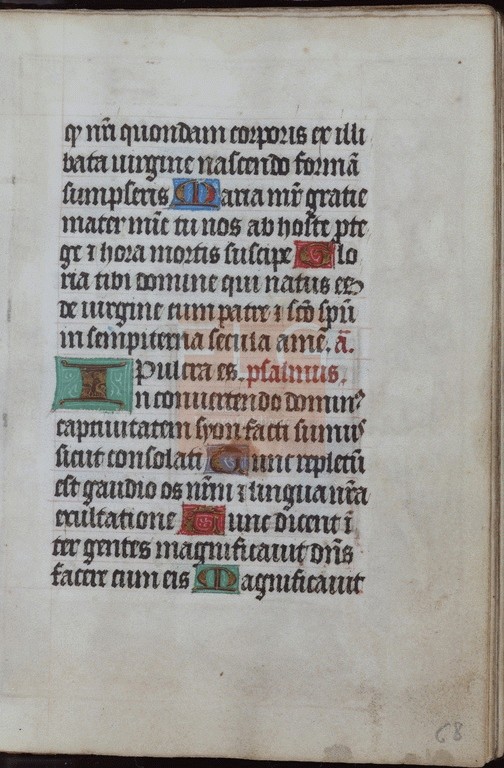 ꝙ nr̄i quondam corporis ex illi
bata uirgine nascendo formā
sumpseris Maria mr̄ gratie
mater mīe tu nos ab hoste ꝓte
ge ⁊ hora mortis suscipe Glo
ria tibi domine qui natus es
de uirgine cum patre ⁊ scō spū
in sempiterna secula amē. ā.
Pulcra es. psalmus.
In conuertendo dominꝰ
captiuitatem syon facti sumus
sicut consolati Tunc repletū
est gaudio os nr̄m ⁊ lingua nr̄a
exultatione Tunc dicent ī
ter gentes magnificauit dn̄s
facere cum eis Magnificauit
68